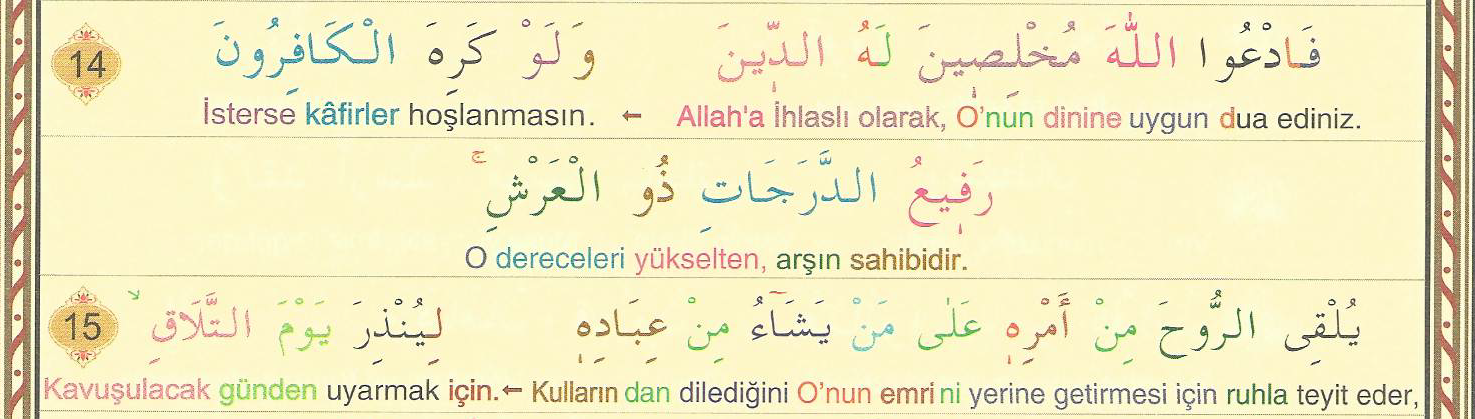 فَادْعُوا اللّٰهَ مُخْلِصٖينَ لَهُ الدّٖينَ وَلَوْ كَرِهَ الْكَافِرُونَ 14
Allah'a İhlaslı olarak, O'nun dinine uygun dua ediniz. ← İsterse kâfirler hoşlanmasın.
رَفٖيعُ الدَّرَجَاتِ ذُو الْعَرْشِۚ
O dereceleri yükselten, arşın sahibidir.
يُلْقِى الرُّوحَ مِنْ أَمْرِهٖ عَلٰى مَنْ يَشَٓاءُ مِنْ عِبَادِهٖ لِيُنْذِرَ يَوْمَ التَّلَاقِۙ 15
Kulların dan dilediğini O'nun emri ni yerine getirmesi için ruhla teyit eder, ← Kavuşulacak günden uyarmak için.